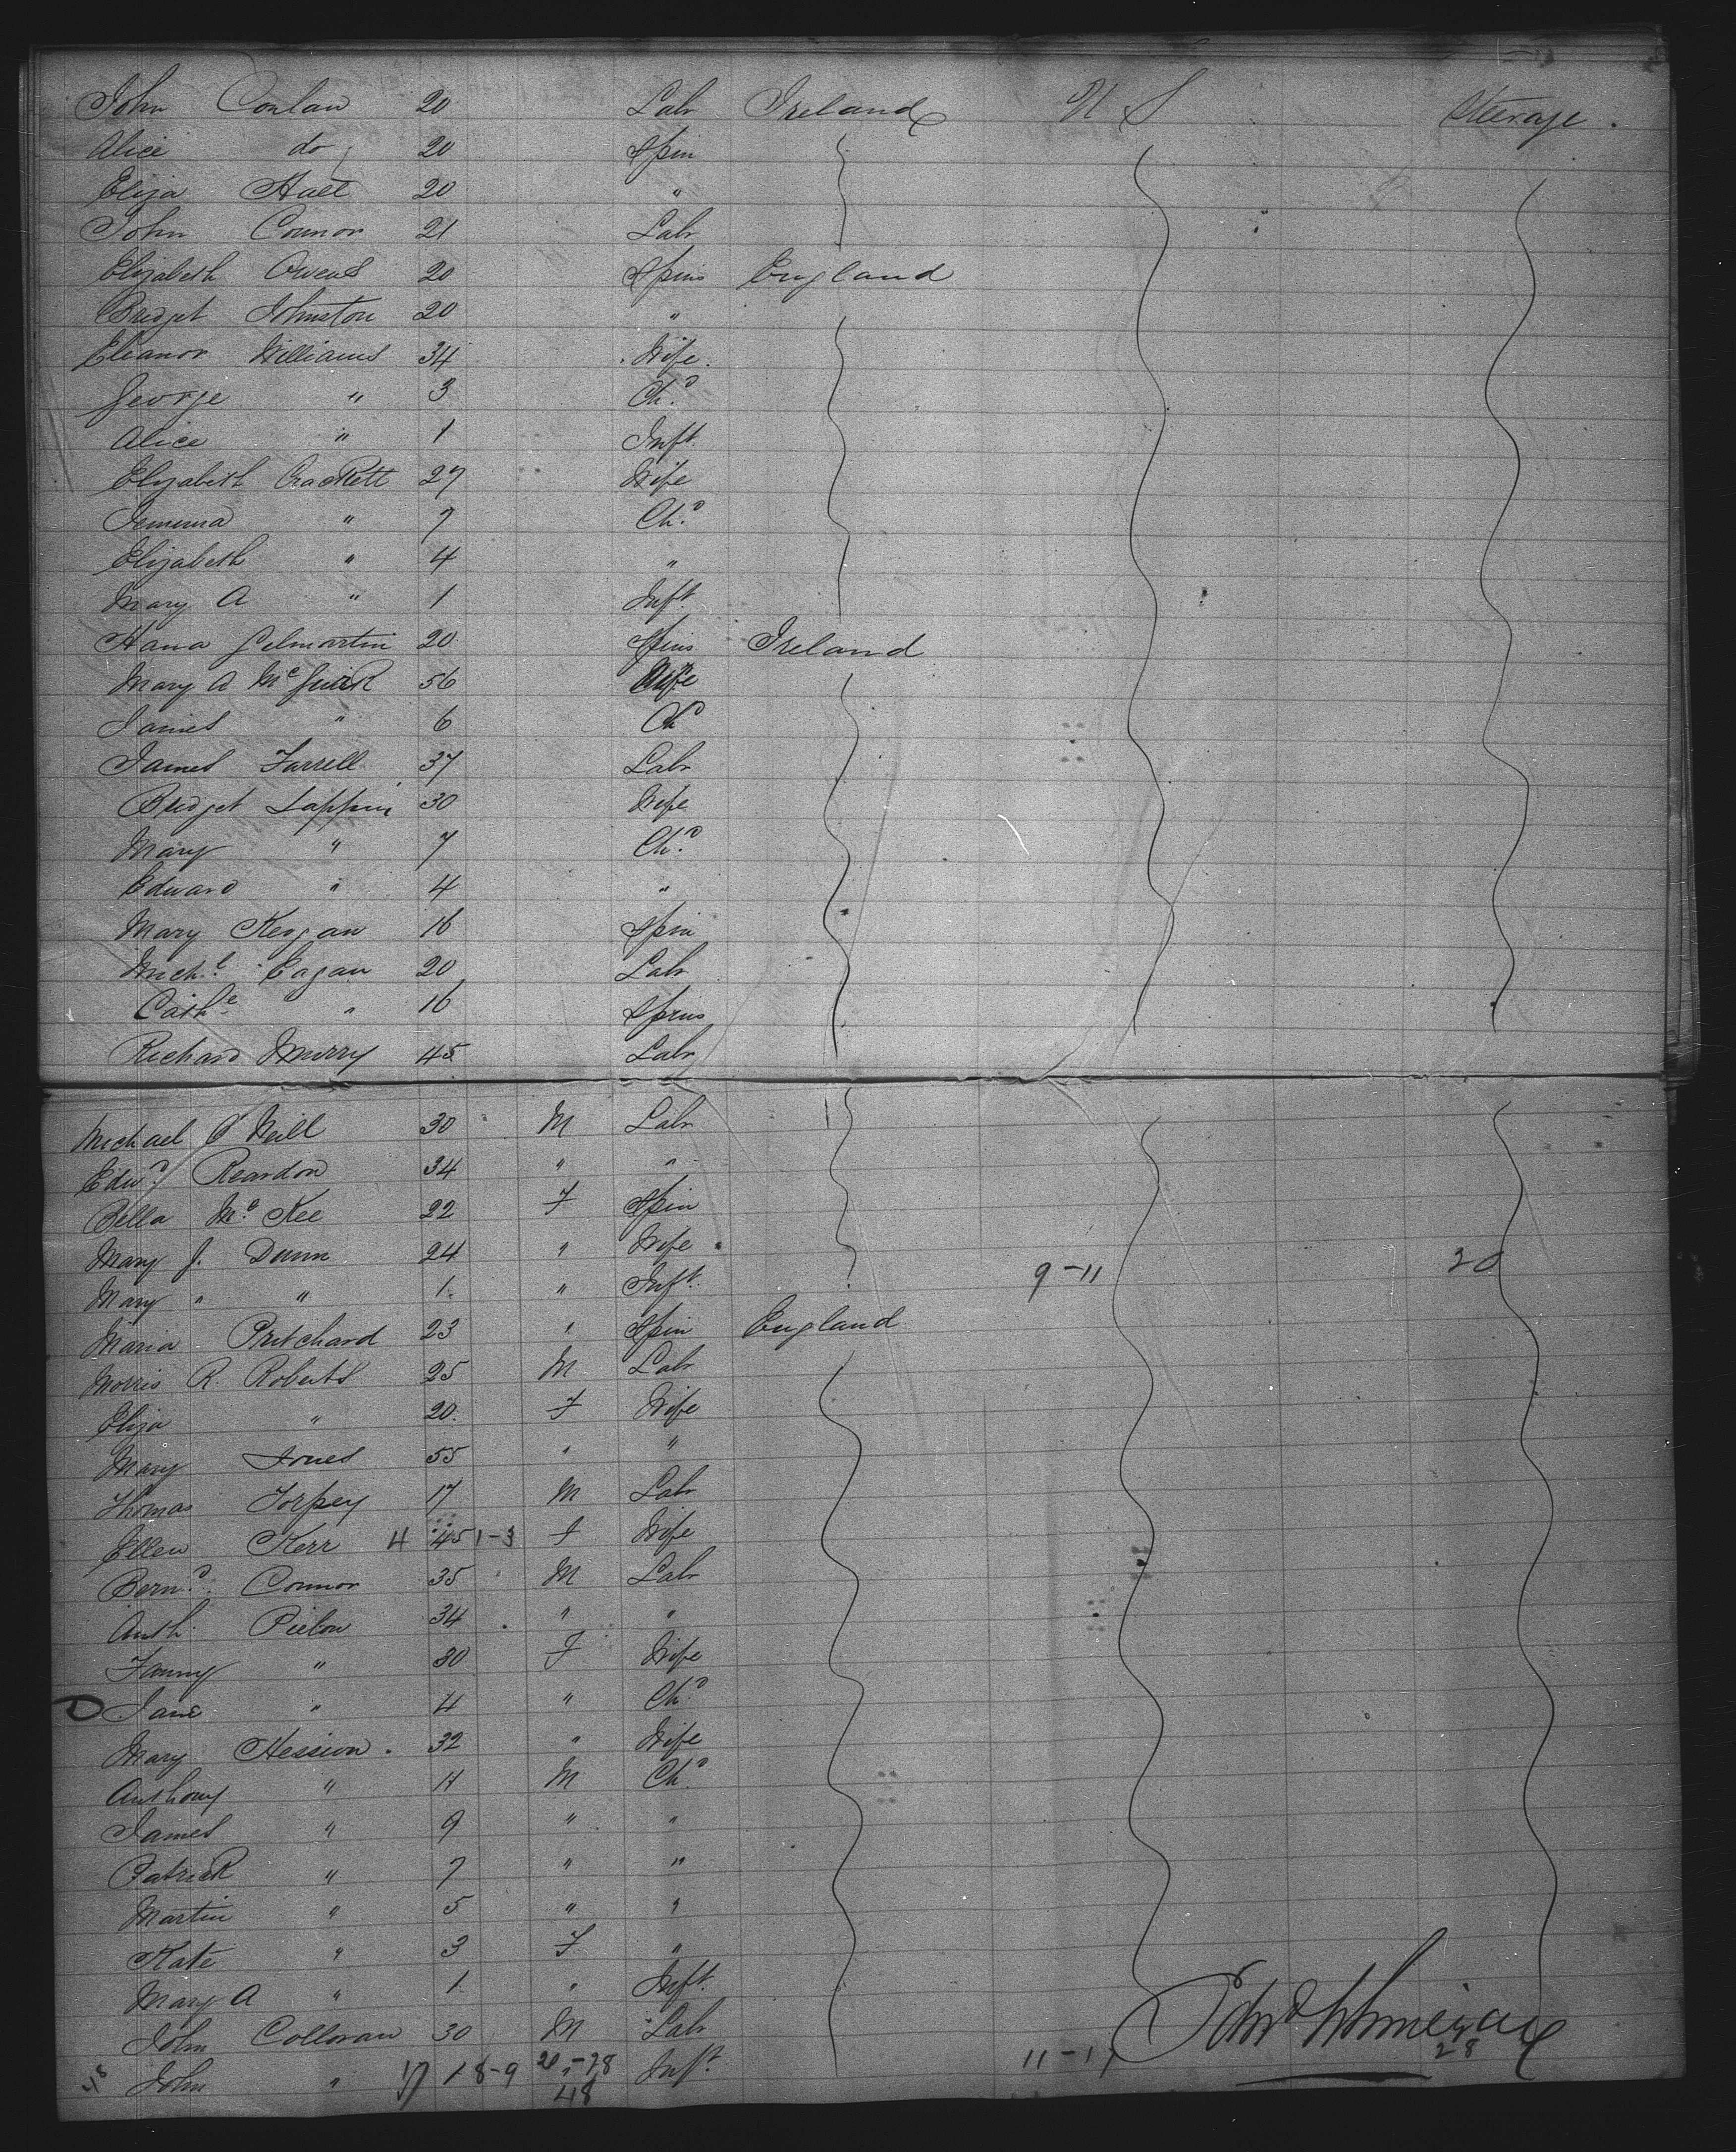 John Conlan 20 Labr Ireland U S Steerage.
Alice do 20 Spin
Eliza Hall 20 "
John Connor 21 Labr
Elizabeth Owens 20 Spins England
Bridget Johnston 20 "
Eleanor Williams 34 Wife
George " 3 Chd
Alice " 1 Inft
Elizabeth Crackett 27 Wife
Jemima " 7 Chd
Elizabeth " 4 "
Mary A " 1 Inft
Hana Gilmartin 20 Spins Ireland
Mary A McGuirk 56 Wife
James " 6 Chd
James Farrell 37 Labr
Bridget Lappin 30 Wife
Mary " 7 Chd
Edward " 4 "
Mary Keegan 16 Spin
Michl Eagan 20 Labr
Cathe " 16 Spins
Richard Murry 45 Labr
Michael O'Neill 30 M Labr
Edwd Reardon 34 " "
Bella McKee 22 F Spin
Mary J. Dunn 24 " Wife 9-11 20
Mary " " 1 " Inft
Maria Pritchard 23 " Spin England
Morris R. Roberts 25 M Labr
Eliza " 20 F Wife
Mary Jones 55 " "
Thomas Torpey 17 M Labr
Ellen Kerr 4 45 1-3 F Wife
Bernd Connor 35 M Labr
Anth. 34 " "
Fanny " 30 F Wife
Jane " 4 " Chd
Mary Hession 32 " Wife
Anthony " 11 M Chd
James " 9 " "
Patrick " 7 " "
Martin " 5 " "
Kate " 3 F "
Mary A " 1 " Inft
John Colloran 30 M Labr
48 John " 17 1 8-9 20-28 Inft 11-17 28
48